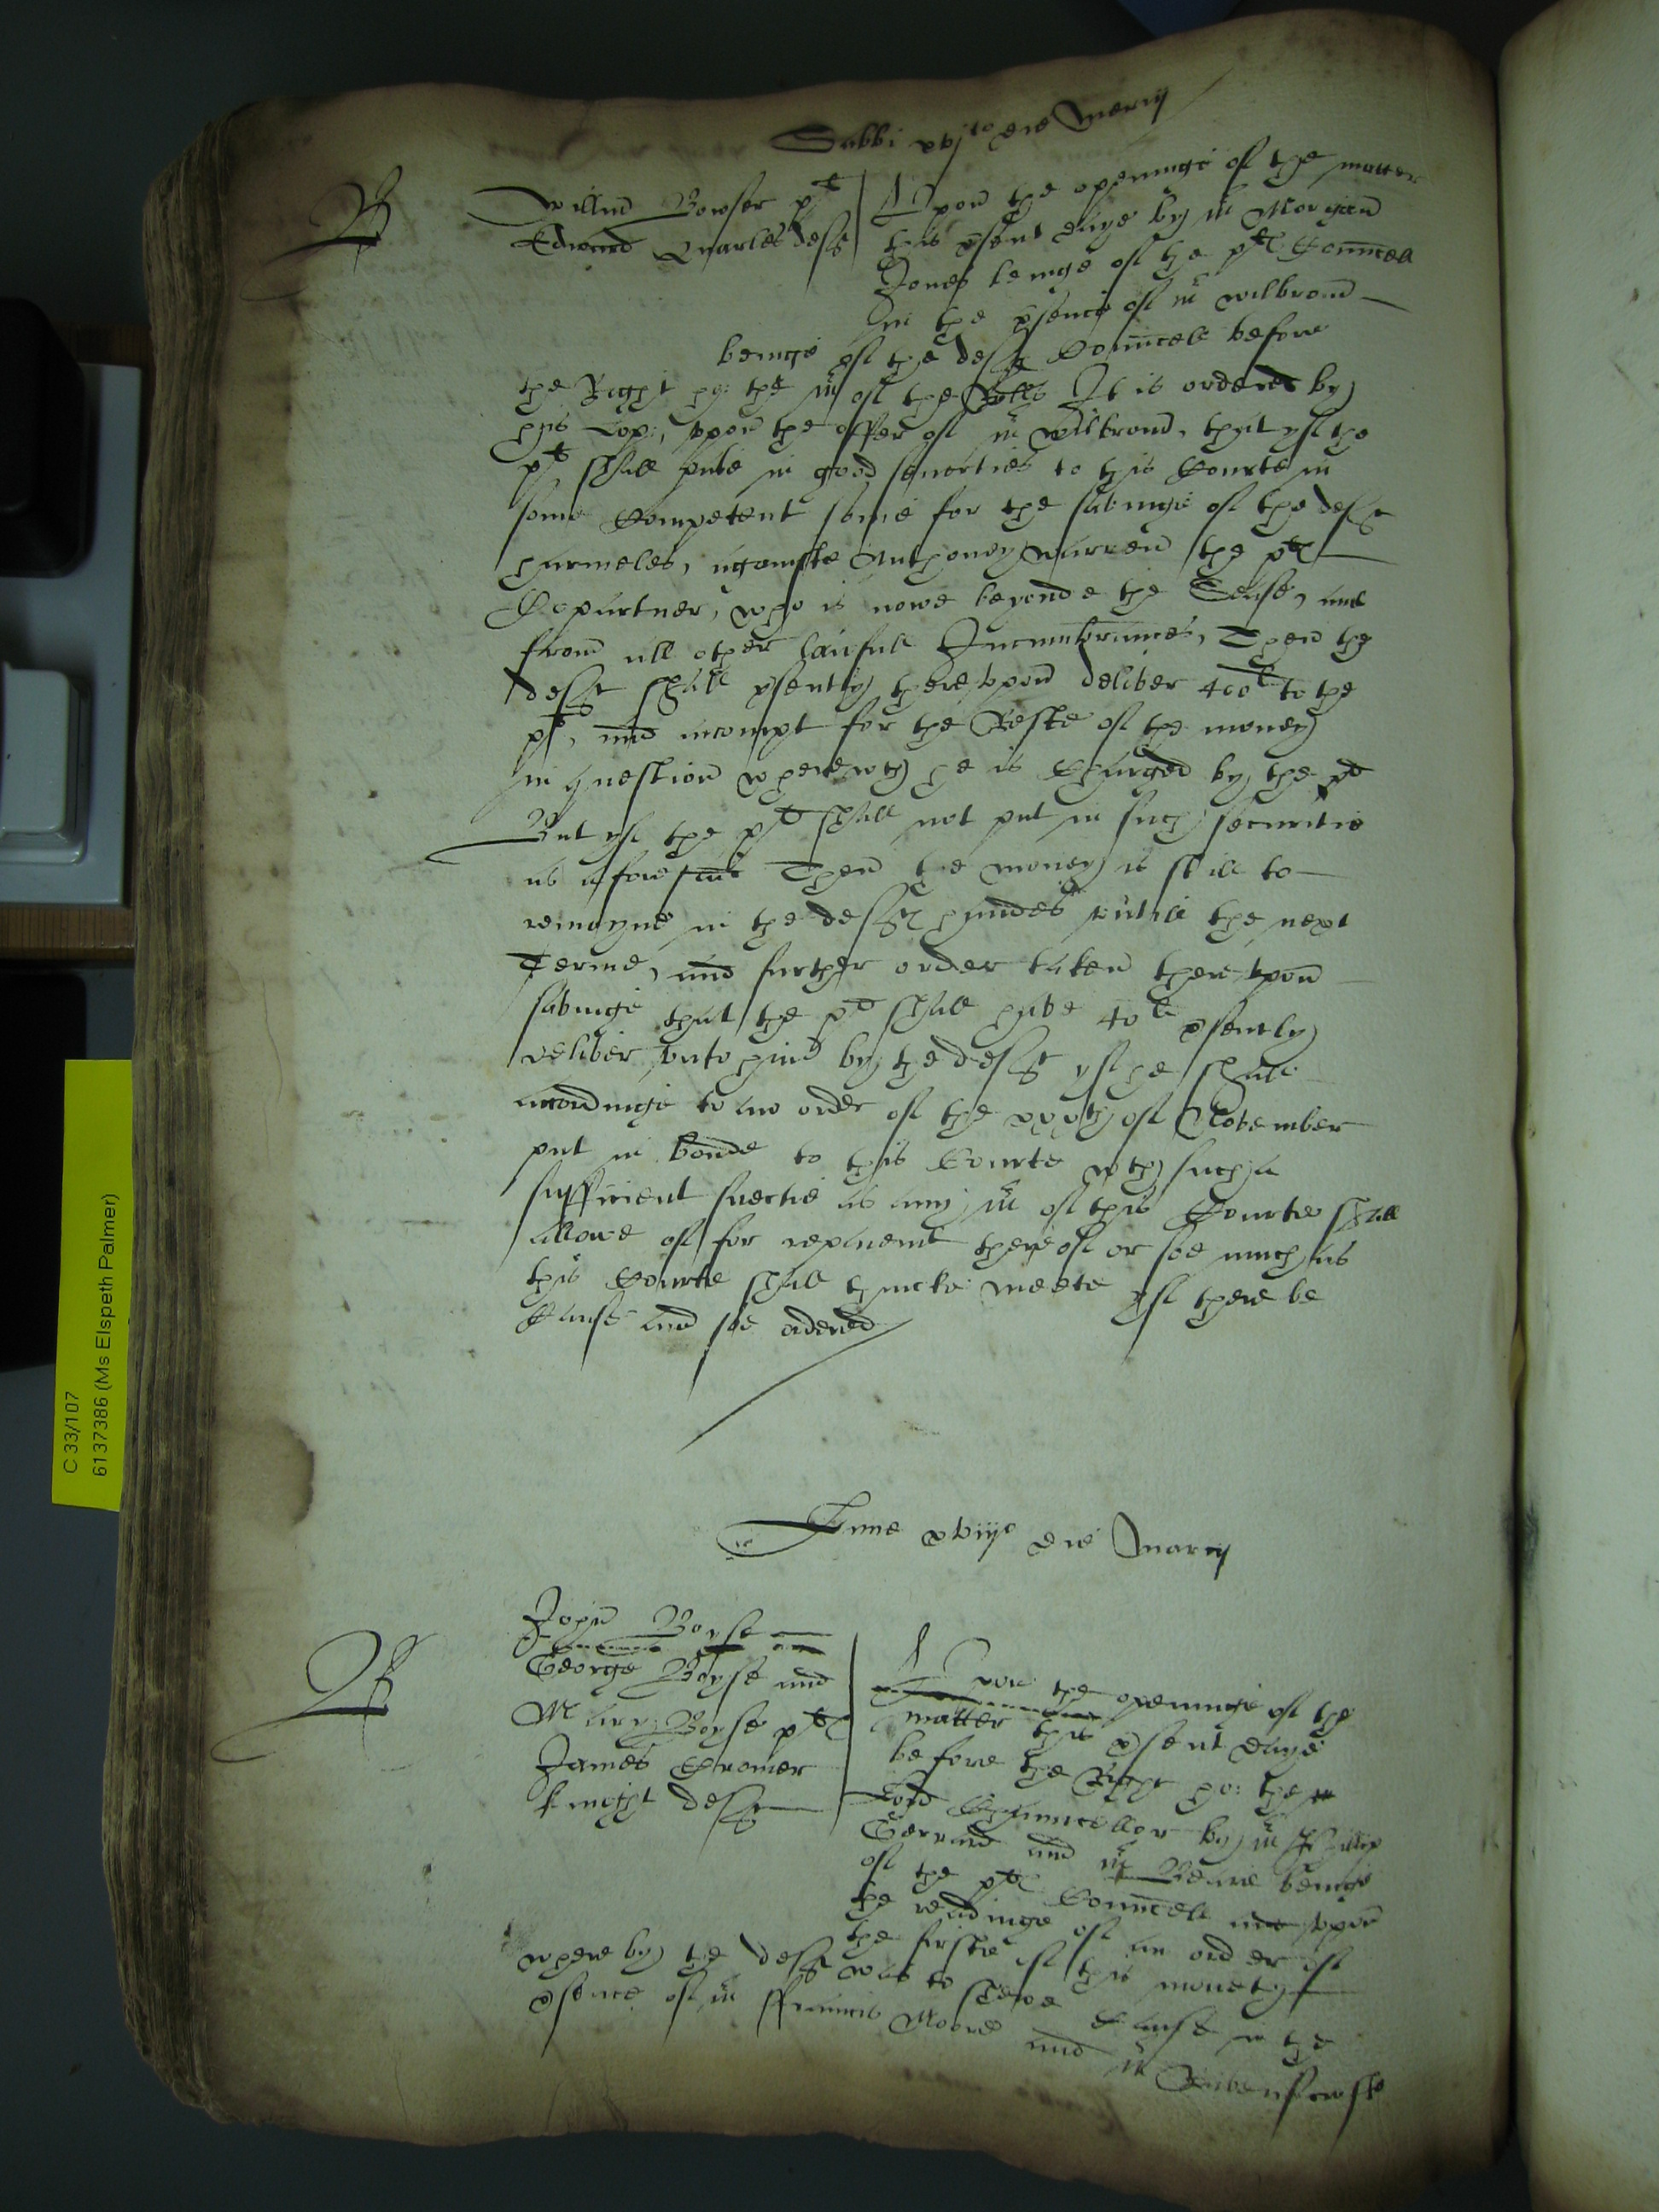 Sabbi xvjto die Marcij
B
Willm Bowser plt
Edward Quarles deft
Upon the openinge of the matter
this psent daye by mr Morgan
Jones beinge of the pltes Councell
in the psence of mr Wilbrom
beinge of the deftes Councell before
the Right ho: the mr of the Rolls It is ordered by
his Lop:, vpon the offer of mr Wilbrom, that yf the
plt shall putt in good suerties to this Courte in
some Competent some for the savinge of the deft
harmeles, againste Anthoney Warren the pltes
Copartner, who is nowe beyonde the Sease, and
from all other lawfull Incumbrances, Then the
deft shall psently therevpon deliver 400li to the
plt, and accompt for the Reste of the money
in question wherewth he is Charged by the plt
But yf the plt shall not put in such securitie
as aforesaid Then the money is still to
remayne in the deftes handes vntill the next
Terme, and further order taken therevpon
savinge that the plt shall have 40li psently
deliver vnto him by the deft yf he shall
accordinge to an order of the xxxth of November
put in bonde to this Courte wth such a
sufficient suertie as any mr of this Courte shall
allowe of for repaiemt thereof or soe much as
this Courte shall thincke meete yf there be
Cause and soe ordered
Lune xviijo die Marcij
B
John Boyse
George Boyse and
Mary Boyse pltes
James Cromer
knight deft
Upon the openinge of the
matter this psent daye
before the Right ho: the
Lord Chauncellor by mr Phillip
Gerrard and mr Beare beinge
of the pltes Councell vpon
the readinge of an order of
the firste of this moneth
whereby the deft was to shewe Cause in the
psence of mr ffrauncis Moore and mr Ravenscrofte
C 33/107
6137386 (Ms Elspeth Palmer)